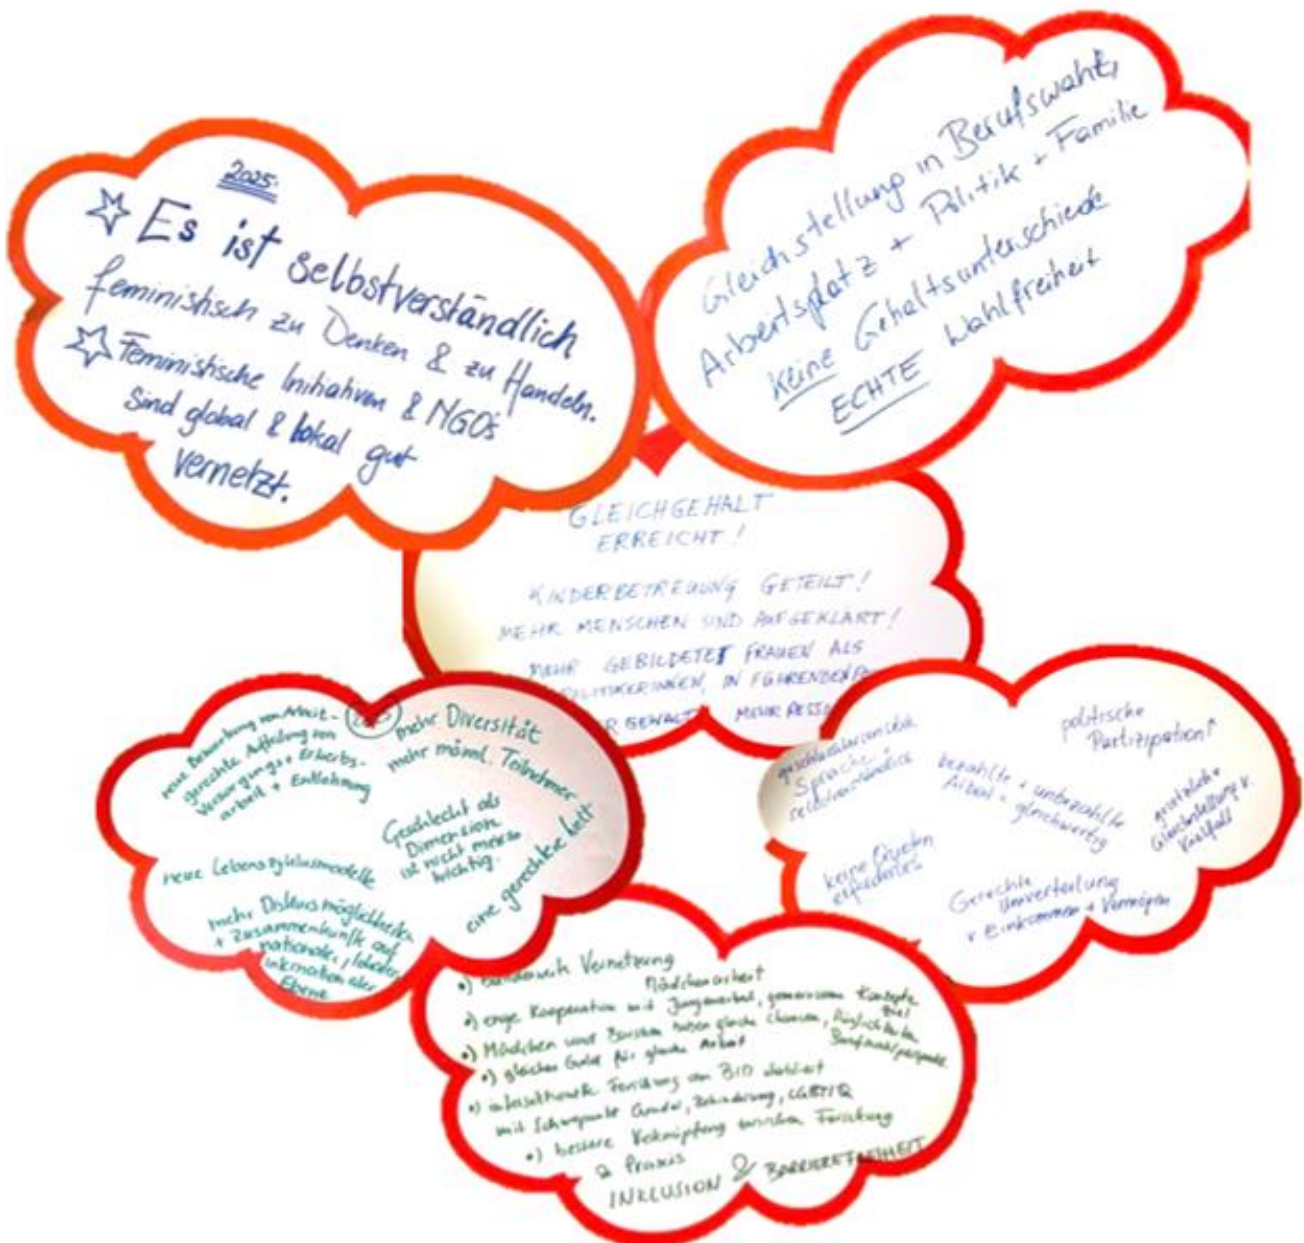 2025:
Es ist selbstverständlich
feministisch zu Denken & zu Handeln.
Feministische Initiativen & NGO's
Sind global & lokal gut
vernetzt.
Gleichstellung in Berufswahl,
Arbeitsplatz + Politik + Familie
keine Gehaltsunterschiede
ECHTE Wahlfreiheit
GLEICHGEHALT
ERREICHT!
KINDERBETREUUNG GETEILT!
MEHR MENSCHEN SIND AUFGEKLÄRT!
MEHR GEBILDETET FRAUEN ALS
POLITIKERINNEN, IN FÜHRENDEN
GEWALT MEHR
neue Bewertung von Arbeit -
gerechte Aufteilung von
Versorgungs + Erwerbs-
arbeit + Entlohnung
mehr Diversität
mehr männl. Teilnehmer
Geschlecht als
Dimension
ist nicht mehr so
wichtig.
eine gerechte Welt
neue Lebenszyklusmodelle
mehr Diskursmöglichkeiten
+ Zusammenkunft auf
nationaler, lokaler,
internationaler
Ebene
politische
Partizipation↑
Sprache
selbstverständlich
bezahlte + unbezahlte
Arbeit = gleichwertig
gesetzliche
Gleichstellung v.
Vielfalt
keine Quoten
erforderlich
Gerechte
Umverteilung
v Einkommen + Vermögen
•) bundesweite Vernetzung
Mädchenarbeit
•) enge Kooperation mit gemeinsame Konzepte
Ziel
•) Mädchen und Burschen haben gleiche Chancen,
•) gleiches Geld für gleiche Arbeit
•) intersektionelle Forschung am etabliert
mit Schwerpunkt Gender, Behinderung, LGBTIQ
•) bessere Verknüpfung zwischen Forschung
& Praxis
INKLUSION & BARRIEREFREIHEIT